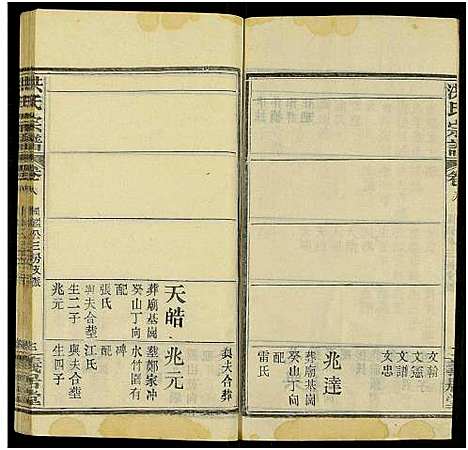 洪氏宗譜
卷八
文翰
文憲
文譜
文忠
兆達
葬廟基崗
癸山丁向
配
雷氏
與夫合葬
兆元
墓鄭家冲
水竹園有
碑
配
江氏
與夫合塟
生四子
天皓
葬廟基崗
癸山丁向
配
張氏
與夫合塟
生二子
兆元
洪氏宗譜
卷八